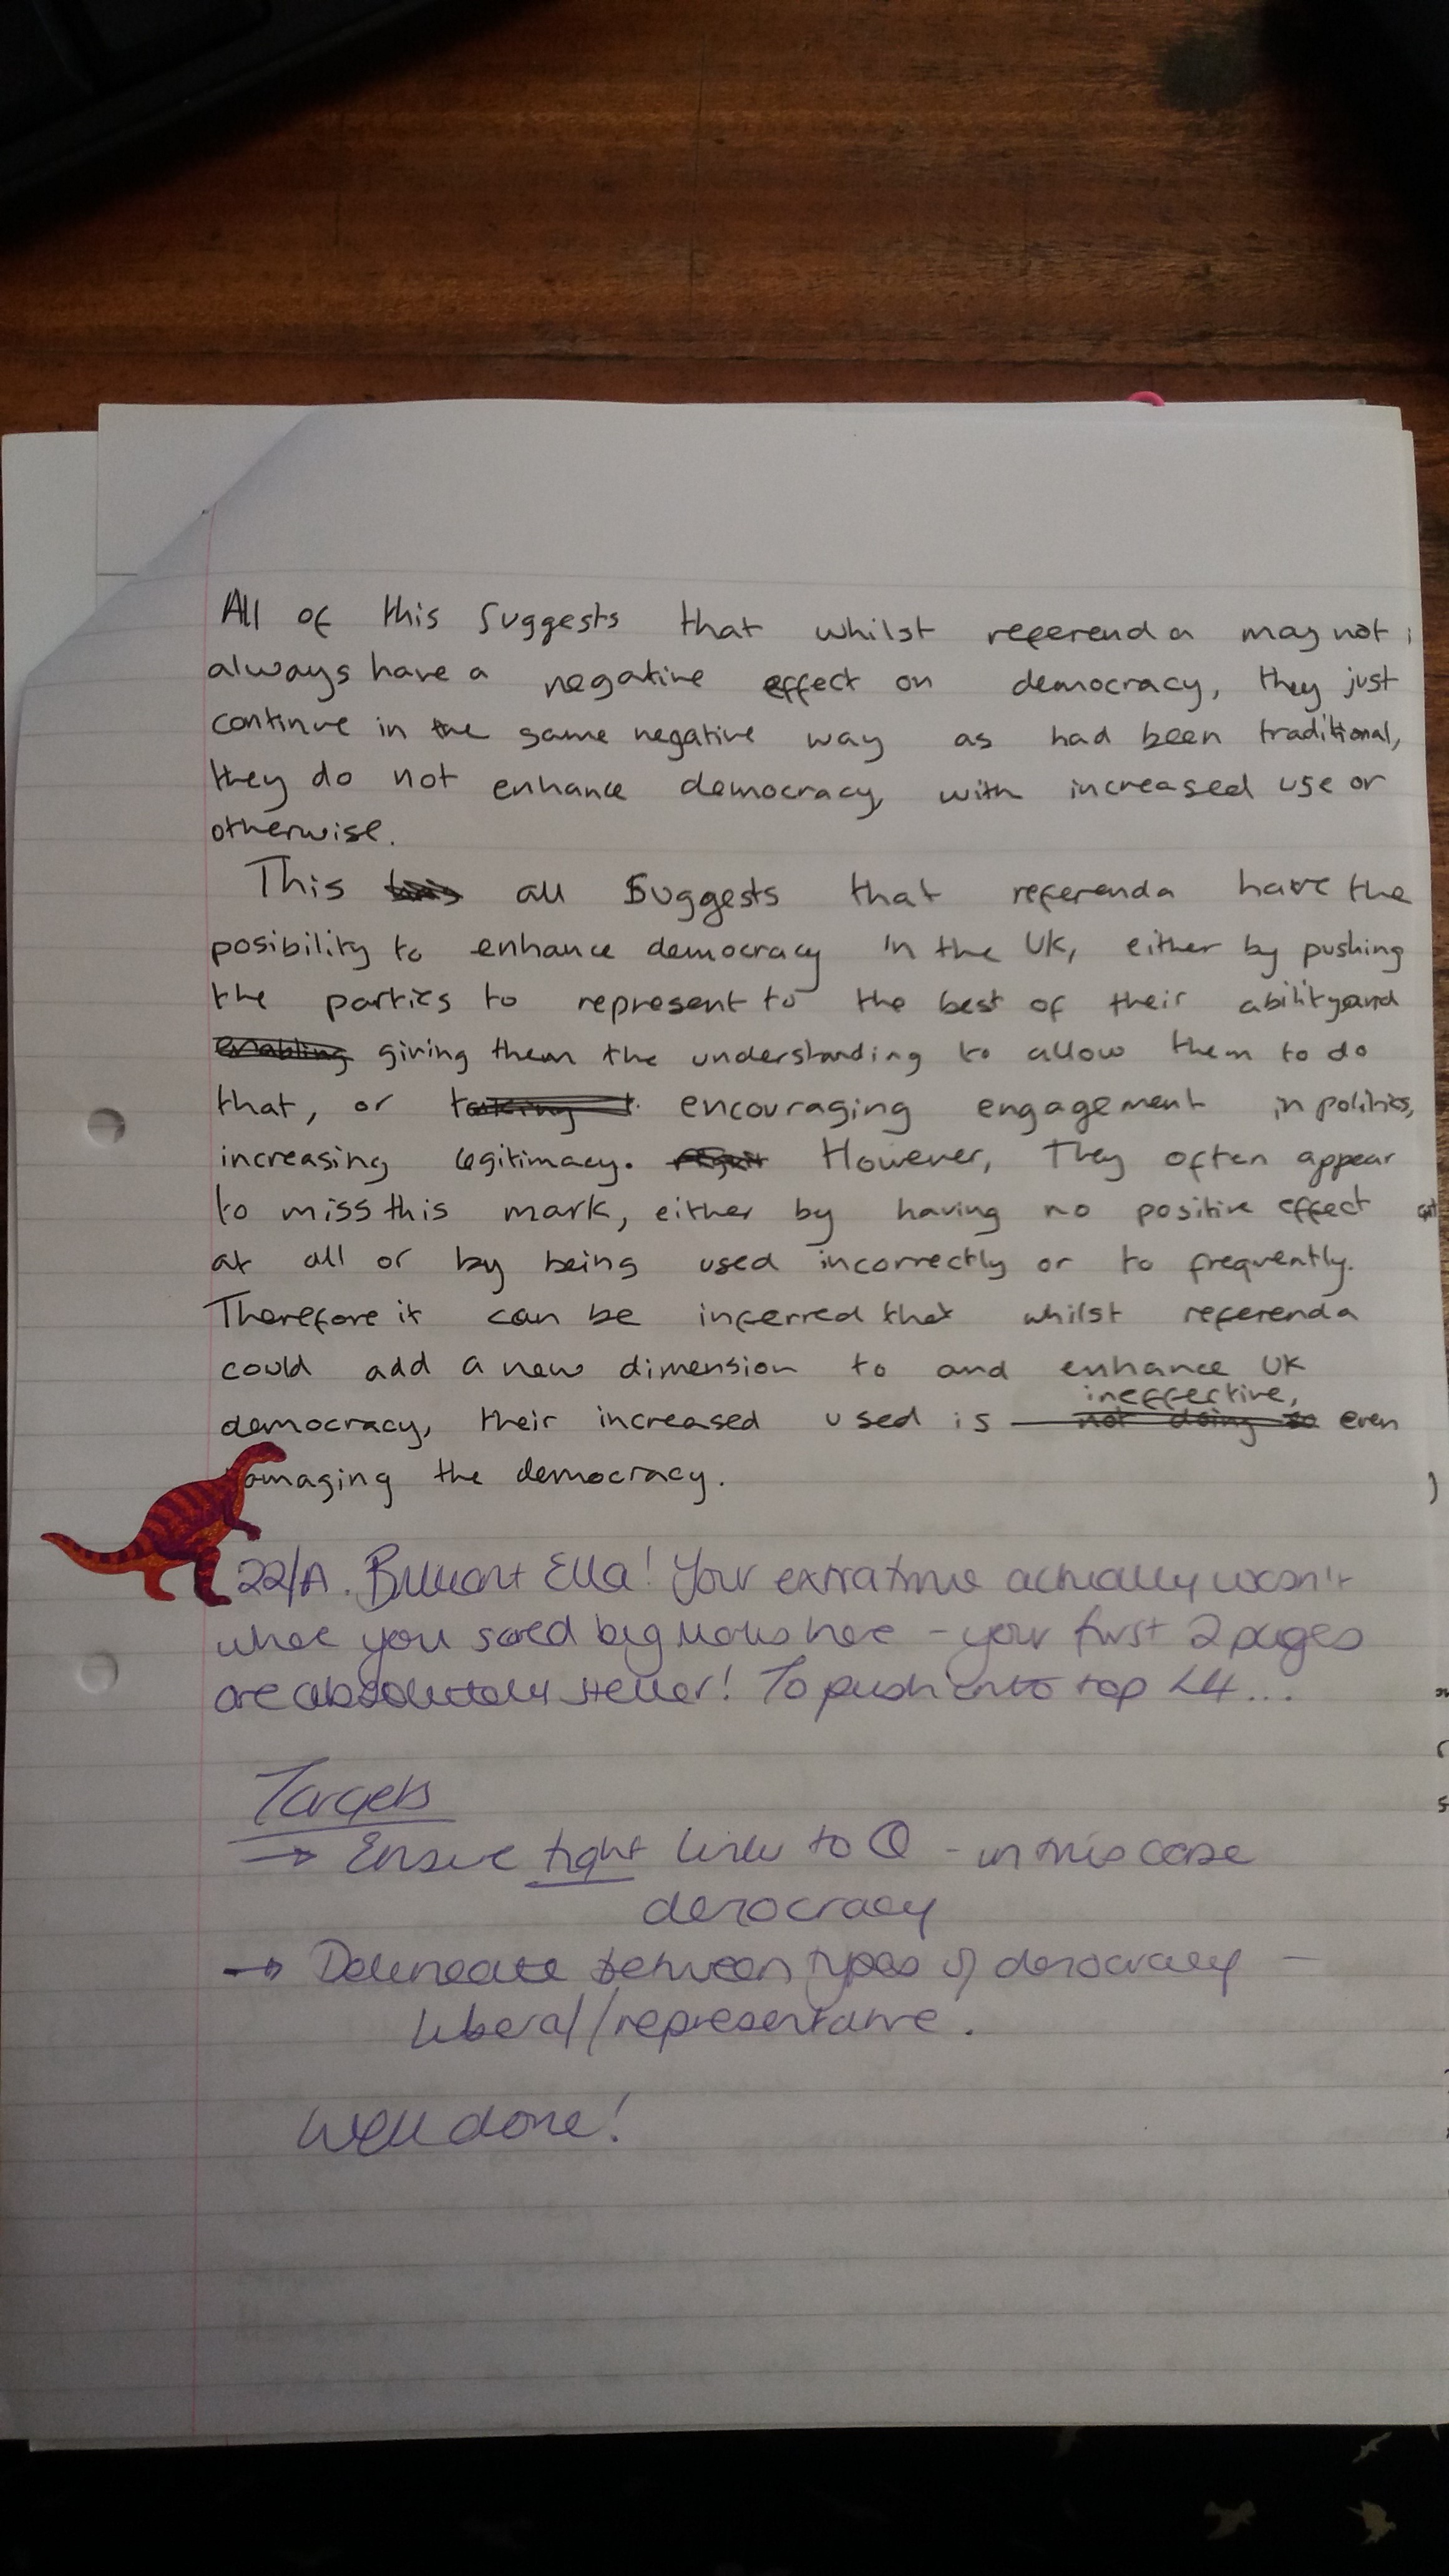 All of this Suggests that whilst referenda may not
always have a negative effect on democracy, they just
continue in the same negative way as had been traditional,
they do not enhance democracy, with increased use or
otherwise.
This all Suggests that referenda have the
posibility to enhance democracy in the UK, either by pushing
the parties to represent to the best of their ability and
enabling giving them the understanding to allow them to do
that, or taking encouraging engagement in politics,
increasing legitimacy. However, They often appear
to miss this mark, either by having no positive effect
at all or by being used incorrectly or to frequently.
Therefore it can be inferred that whilst referenda
could add a new dimension to and enhance UK
ineffective,
democracy, their increased used is not doing so even
damaging the democracy.
22/A. Brilliant Ella! Your extra time actually wasn't
where you scored big marks here - your first 2 pages
are absolutely steller! To push into top L4...
Targets
→ Ensure tight links to Q - in this case
democracy
→ Delineate between types of democracy -
liberal/representative.
Well done!